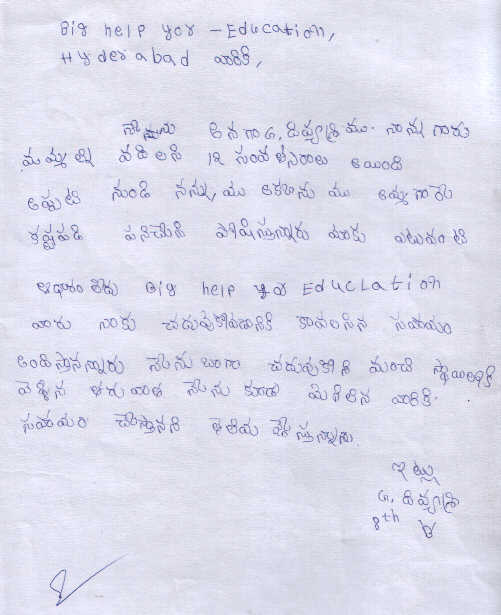 Big help yor - Education,
Hyderabad వారికి,
నేను అనగా G. దివ్యశ్రీ ము. నాన్న గారు
మమ్మల్ని వదిలేసి 12 సంవత్సరాలు అయింది
అప్పటి నుండి నన్ను, మా అక్కను మా అమ్మ గారు
కష్టపడి పనిచేసి పోషిస్తున్నారు మాకు ఎటువంటి
ఆధారం లేదు Big help yor Educlation
వారు నాకు చదువుకోవడానికి కావలసిన సహాయం
అందిస్తానన్నారు నేను బాగా చదువుకొని మంచి స్థాయిలోకి
వెళ్ళిన తరువాత నేను కూడా మిగిలిన వారికి
సహాయం చేస్తానని తెలియ చేస్తున్నాను.
ఇట్లు
G. దివ్యశ్రీ
8th